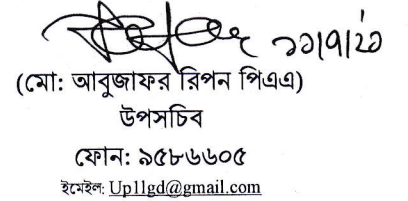 (মো: আবুজাফর রিপন পিএএ)
উপসচিব
ফোন: ৯৫৮৬৬০৫
ইমেইল: Up1lgd@gmail.com